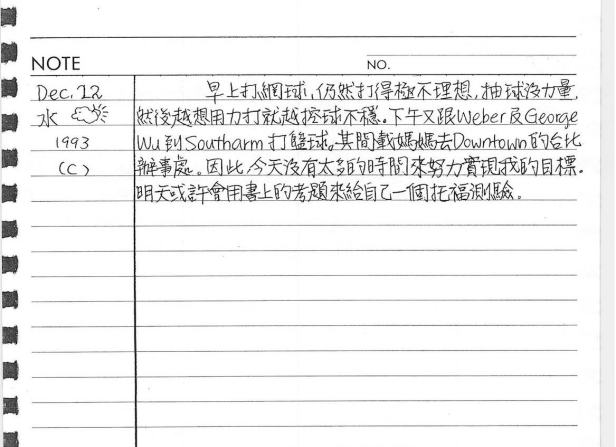 NOTE
NO.
Dec. 22
水
1993
(C)
早上打網球,仍然打得極不理想,抽球沒力量,
然後越想用力打就越控球不穩。下午又跟Weber及George
Wu到Southarm打籃球,其間載媽媽去Downtown的台北
辦事處。因此今天沒有太多的時間來努力實現我的目標。
明天或許會用書上的考題來給自己一個托福測驗。